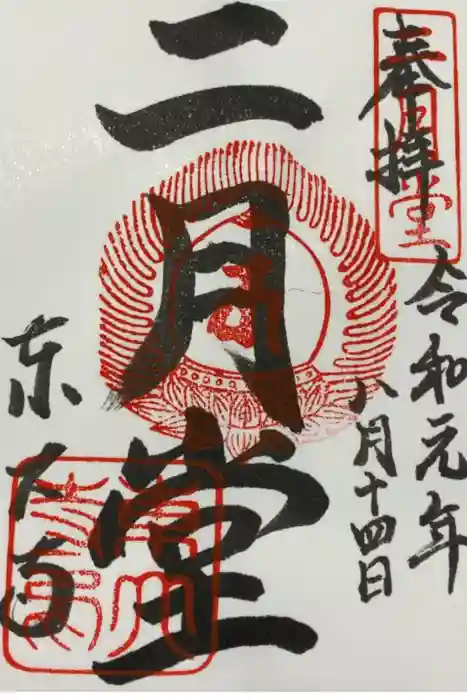 奉拝
二月堂
令和元年
八月十四日
二月堂
东大寺